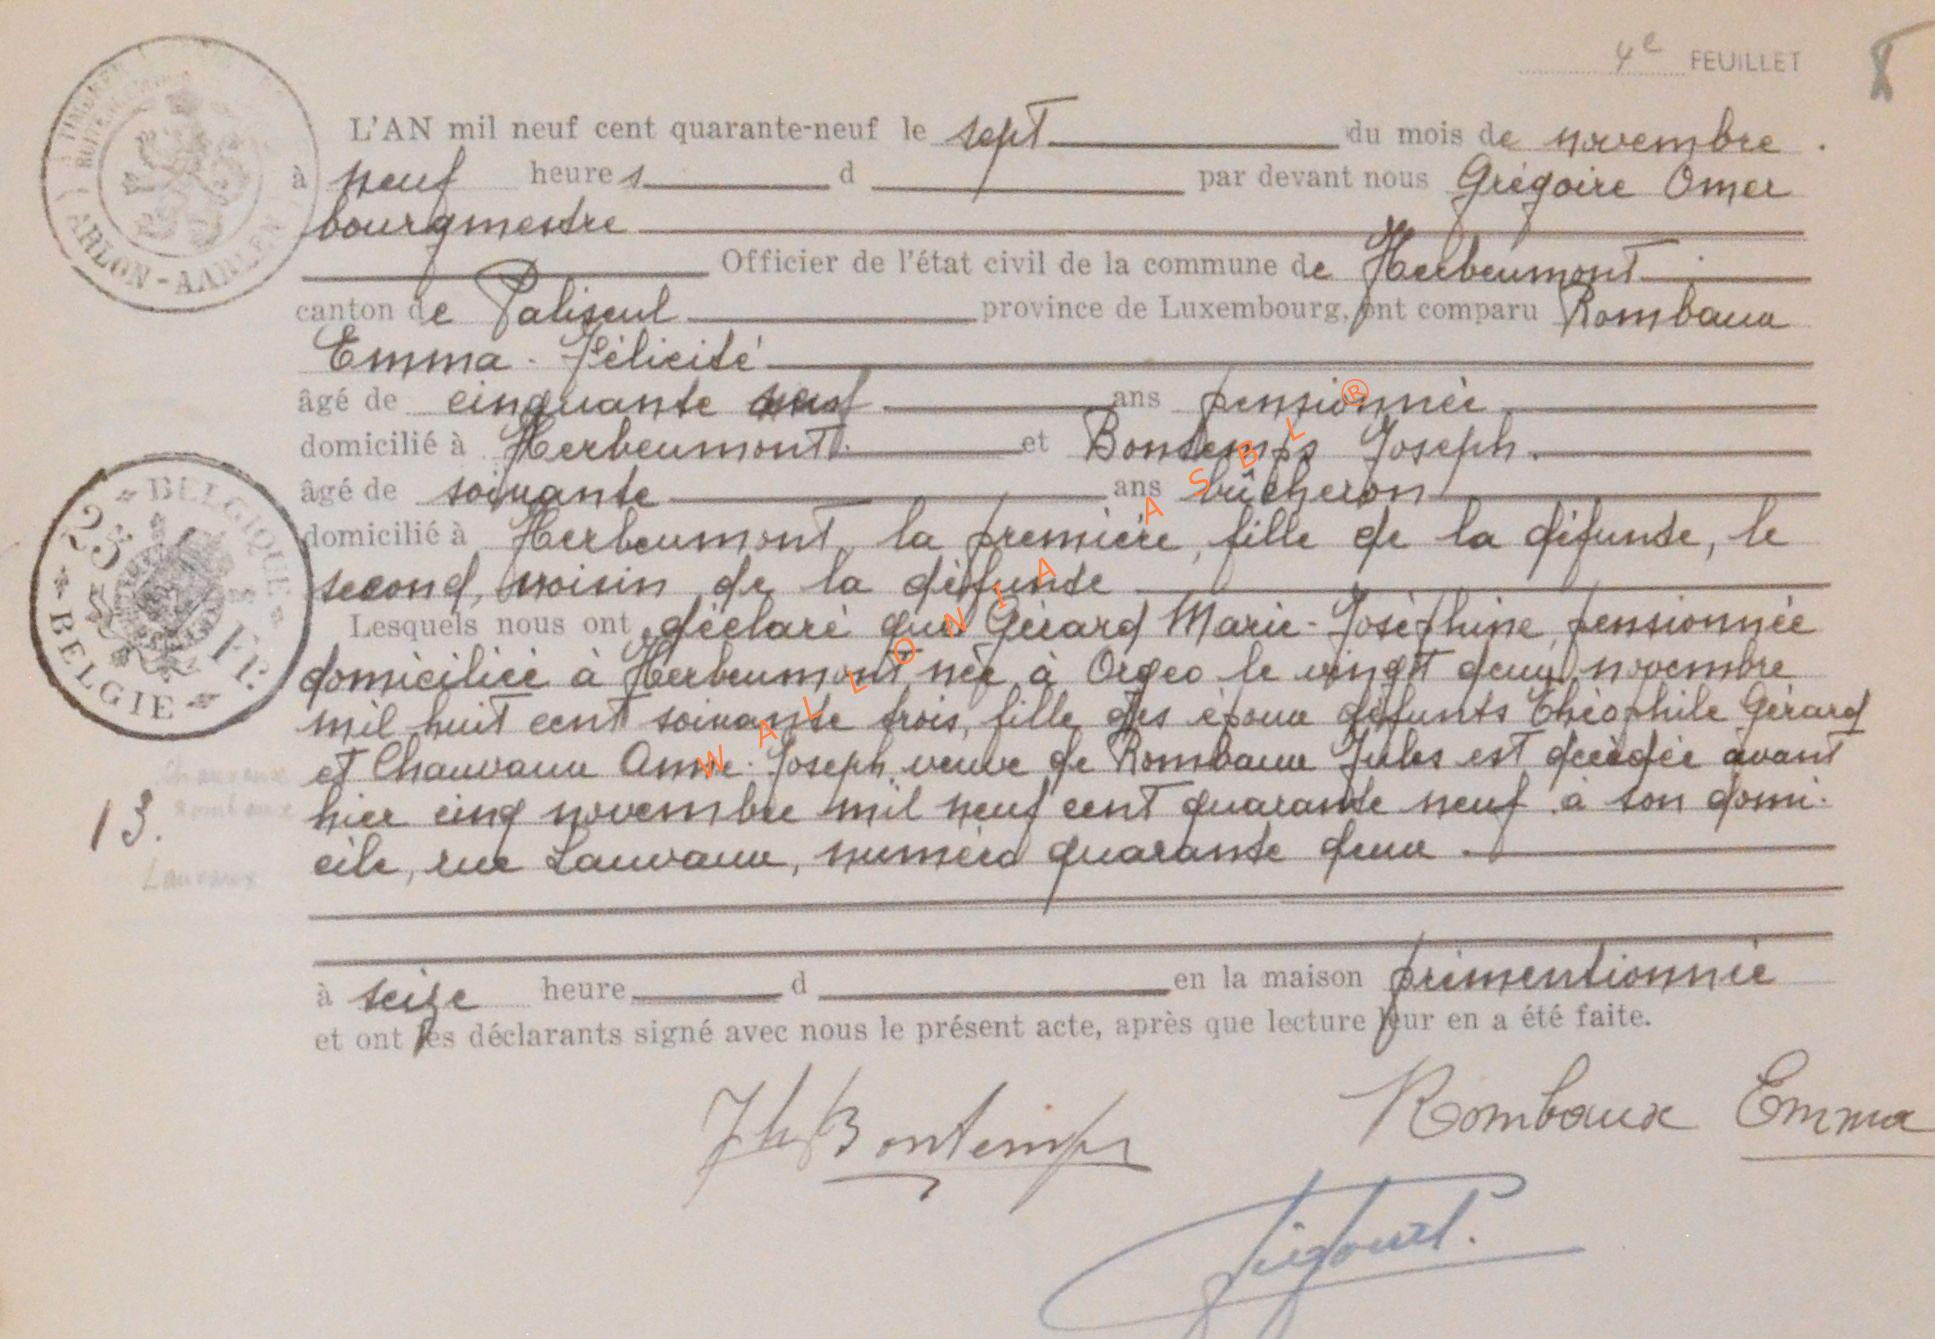 4e FEUILLET
L'AN mil neuf cent quarante-neuf le sept du mois de novembre.
à neuf heures d par devant nous Grégoire Omer
bourgmestre
Officier de l'état civil de la commune de Herbeumont
canton de Paliseul province de Luxembourg, ont comparu Rombaux
Emma-Félicité
âgé de cinquante neuf ans pensionnée
domicilié à Herbeumont et Bontemps Joseph.
âgé de soixante ans bûcheron
domicilié à Herbeumont, la première, fille de la défunte, le
second, voisin de la défunte
Lesquels nous ont déclaré que Gérard Marie-Joséphine, pensionnée
domiciliée à Herbeumont née à Orgeo le vingt deux novembre
mil huit cent soixante trois, fille des époux défunts Théophile Gérard
et Chauvaux Anne-Joseph, veuve de Rombaux Jules est décédée avant
hier cinq novembre mil neuf cent quarante neuf à son domi-
cile, rue Lauvaux, numéro quarante deux.
à seize heure d en la maison prémentionnée
et ont les déclarants signé avec nous le présent acte, après que lecture leur en a été faite.
Jh Bontemps
Rombaux Emma
ARLON-AARLEN
BELGIQUE
25 Fr.
BELGIE
Rombaux
13.
Lauvaux
WALLONIA ASBL ®